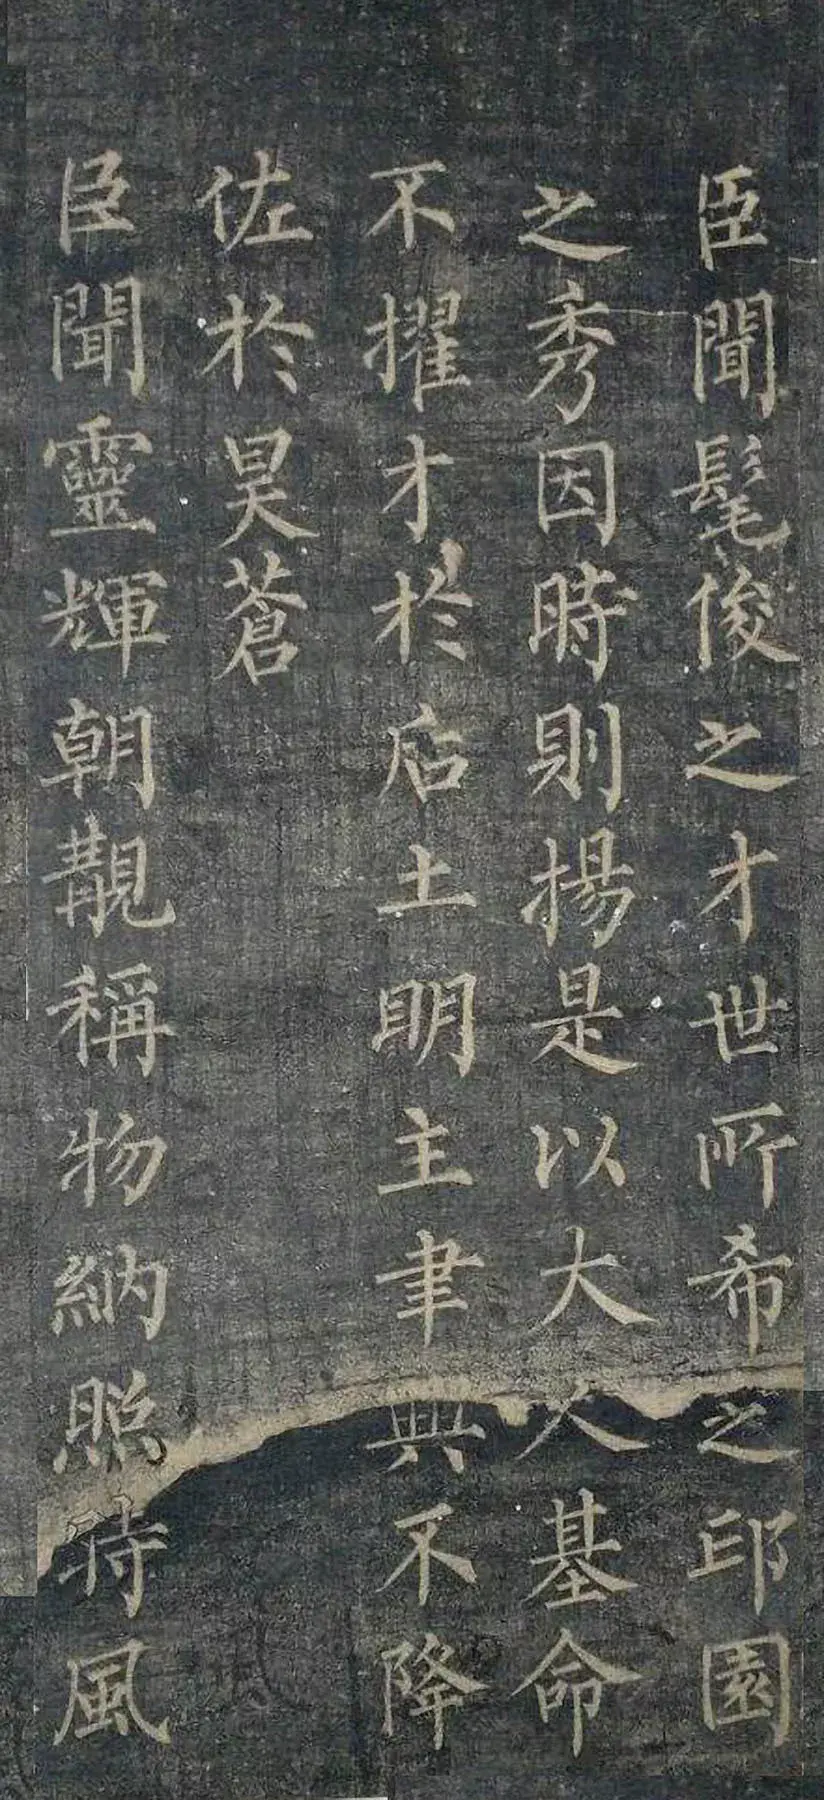 臣聞髦俊之才世所希之邱園
之秀因時則揚是以大人基命
不擢才於后土明主聿興不降
佐於昊蒼
臣聞靈輝朝覯稱物納照時風